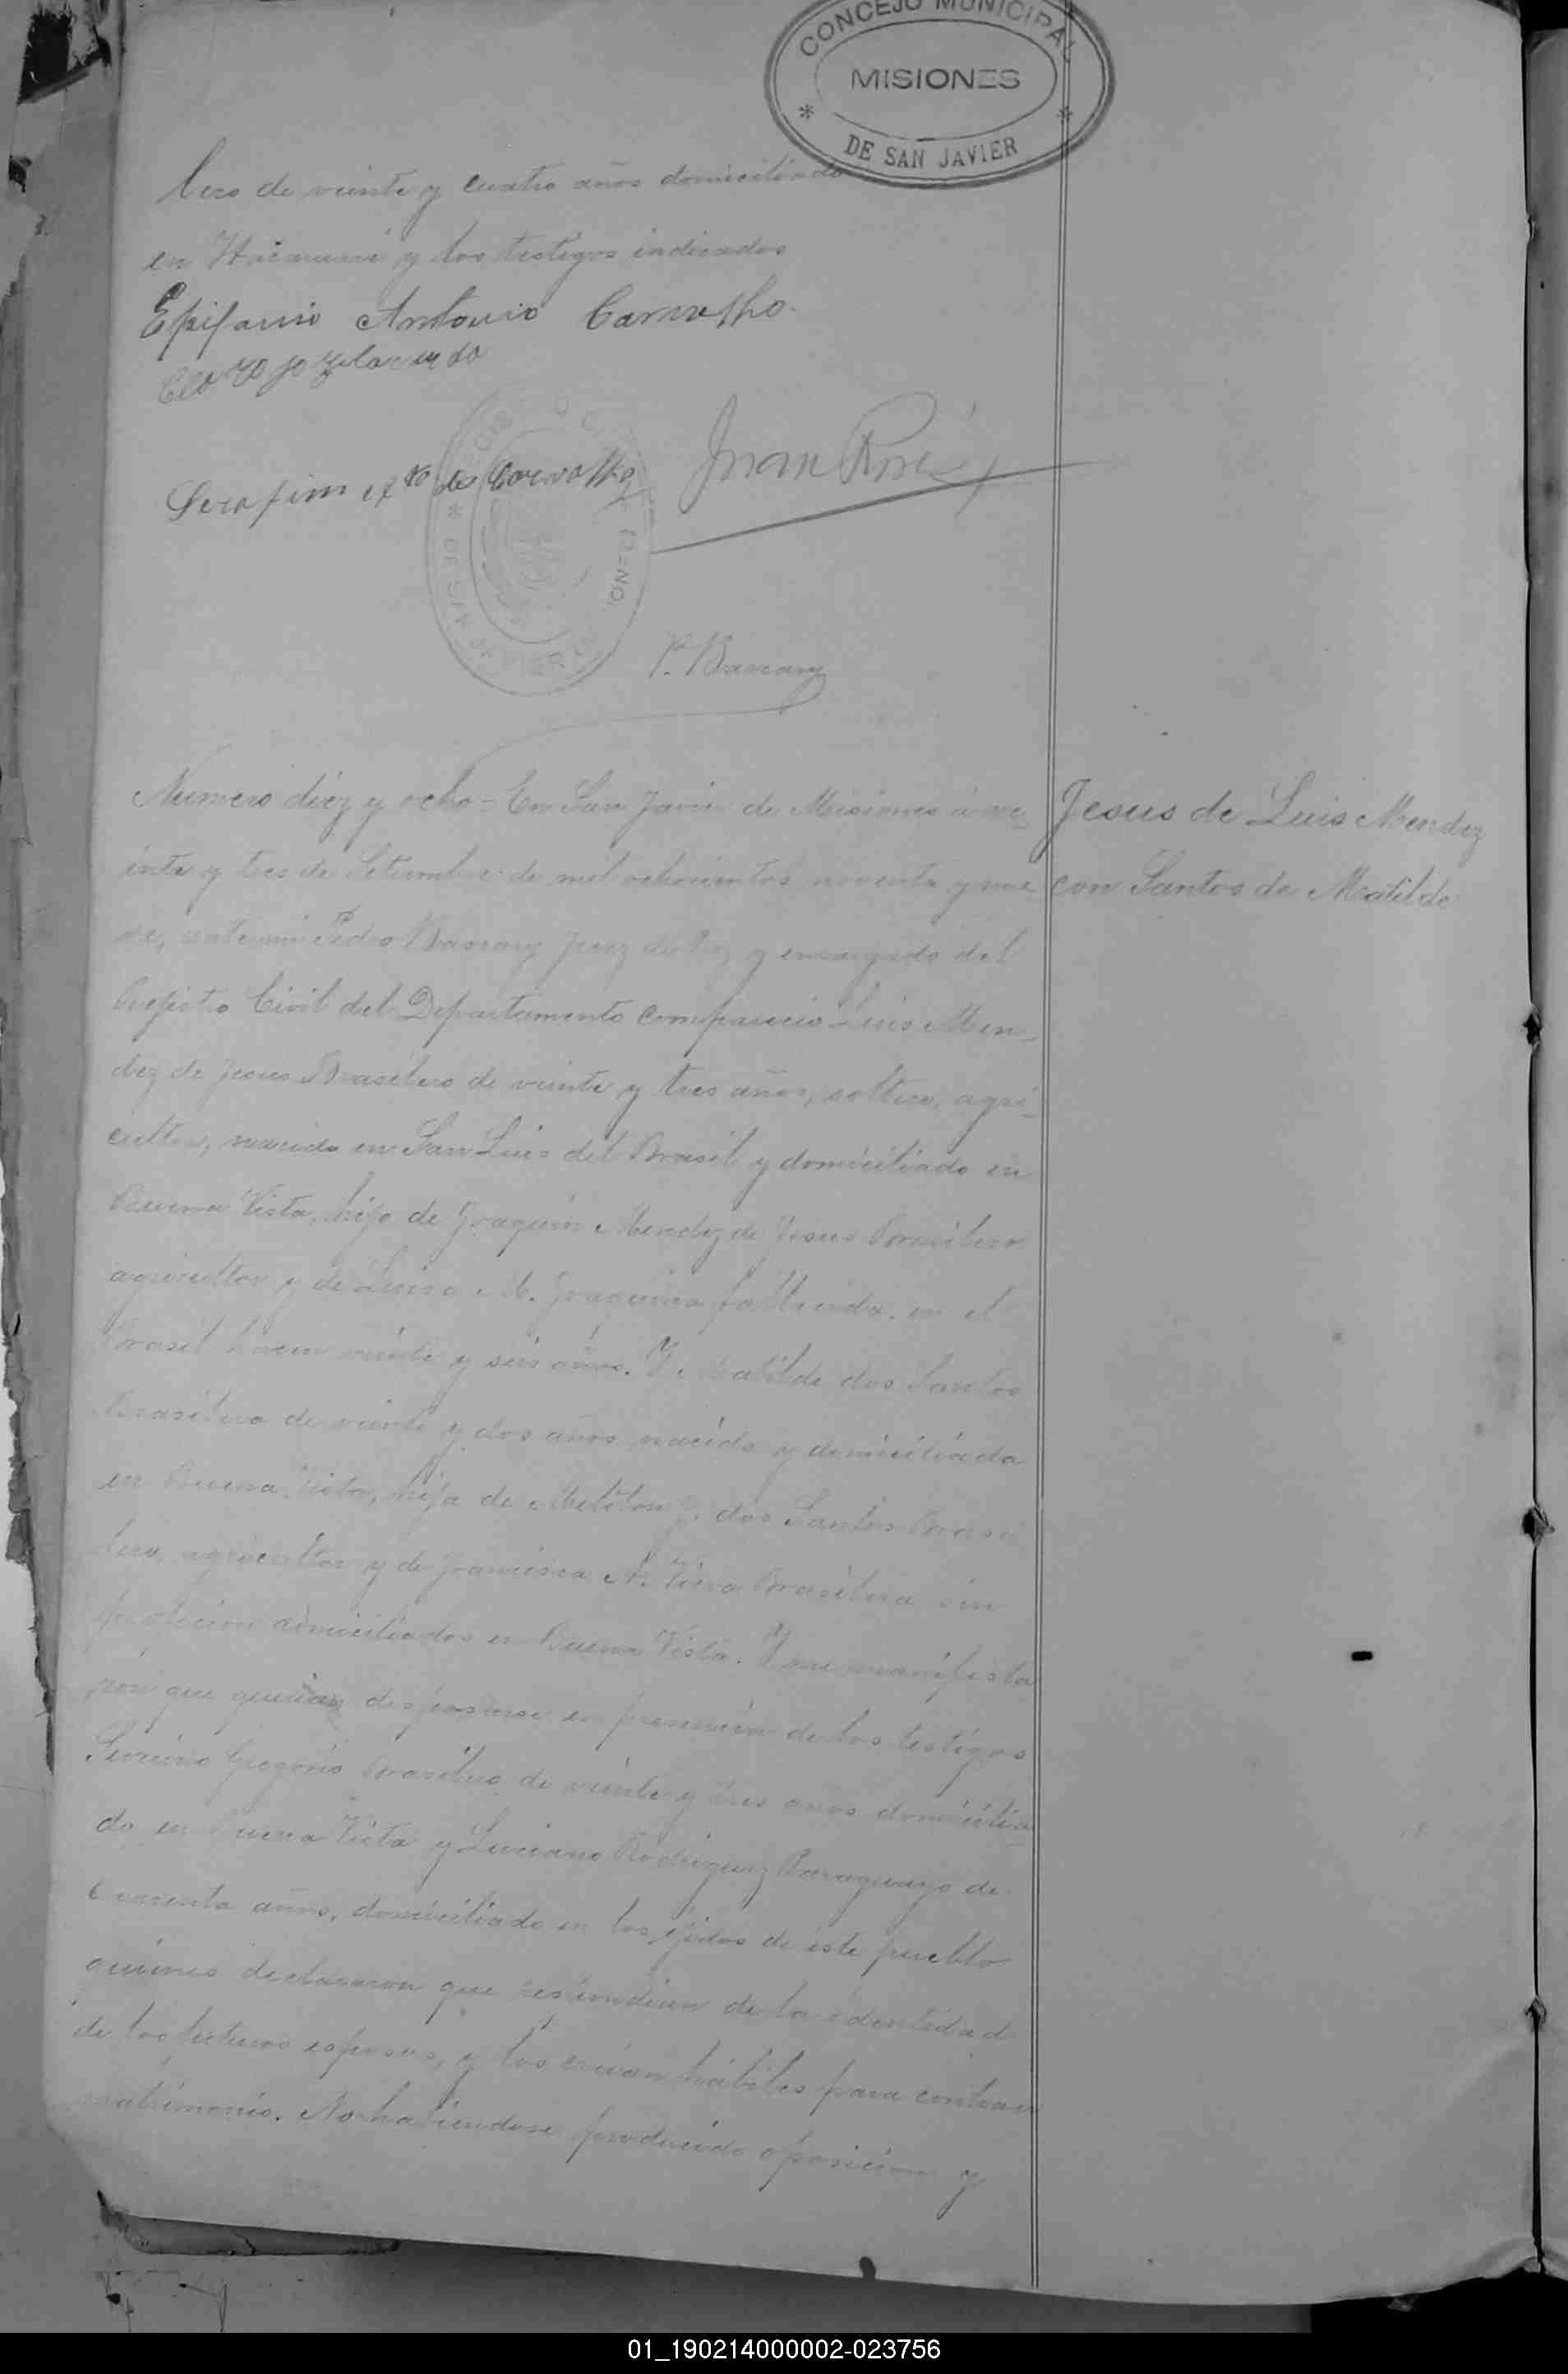 CONCEJO MUNICIPAL
MISIONES
DE SAN JAVIER
lero de veinte y cuatro años domiciliado
en y los testigos indicados
Epifanio Antonio Carvalho
Serafim de Carvalho
Juan
DE SAN JAVIER
P.
Numero diez y ocho = En San Javier de Misiones á ve
inte y tres de Setiembre de mil ochocientos noventa y nue
ve, ante mi Pedro Juez de Paz y encargado del
Registro Civil del Departamento comparecio Luis Men
dez de Jesus Brasilero de veinte y tres años, soltero, agri
cultor, nacido en San Luis del Brasil y domiciliado en
Buena Vista, hijo de Joaquin Mendez de Jesus Brasilero
agricultor y de Luisa M. Joaquina fallecida en el
Brasil hacen veinte y seis años. Y Matilde dos Santos
Brasilera de veinte y dos años nacida y domiciliada
en Buena Vista, hija de Meliton dos Santos Brasi
lero, agricultor y de Francisca A. Brasilera sin
profecion domiciliados en Buena Vista. Y me manifesta
ron que querian desposarse en presencia de los testigos
Gregorio Brasilero de veinte y tres años domicilia
do en Buena Vista y Luciano Rodriguez Paraguayo de
cuarenta años, domiciliado en los ejidos de este pueblo
quienes declararon que respondian de la identidad
de los futuros esposos, y los creian hábiles para contraer
matrimonio. No habiendose producido oposicion y
Jesus de Luis Mendez
con Santos de Matilde
01_190214000002-023756